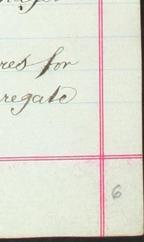 res for
regate
6